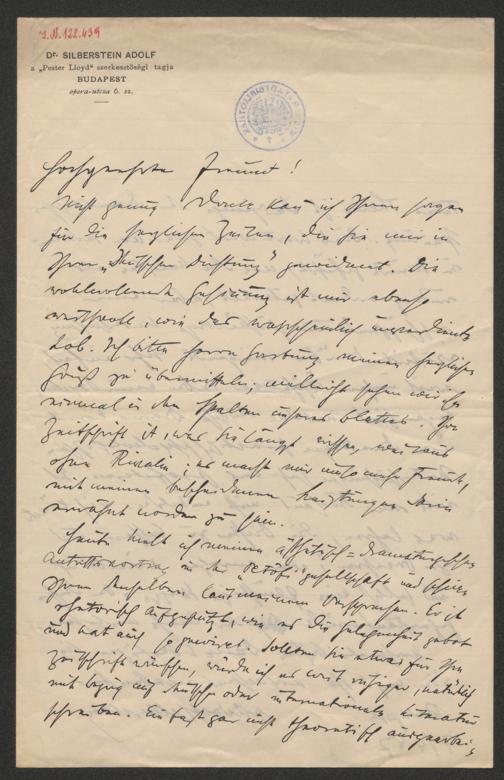 I.N. 122.439
Dr. SILBERSTEIN ADOLF
a „Pester Lloyd“ szerkesztőségi tagja
BUDAPEST
opera-utcza 6. sz.
Hochgeehrter Freund!
Nicht genug Dank kann ich Ihnen sagen
für die herzlichen Zeilen, die Sie mir in
Ihrer „Deutschen Dichtung“ gewidmet. Die
wohlwollende Gesinnung ist mir ebenso
werthvoll, wie das wahrscheinlich unverdiente
Lob. Ich bitte Herrn meinen herzlichen
Gruß zu übermitteln; vielleicht sehen wir Sie
einmal in den Spalten unseres Blattes. Ihre
Zeitschrift ist, was Sie längst wissen, weitaus
ohne Rivalin; es macht mir umso mehr Freude,
mit meinen bescheidenen Leistungen darin
erwähnt worden zu sein.
Heute hielt ich meinen ästhetisch=dramaturgischen
Antrittsvortrag in der „Petőfi“gesellschaft und schicke
Ihnen denselben Versprechen. Er ist
rhetorisch aufgeputzt, wie es die Gelegenheit gebot
und hat auch so gewirkt. Sollten Sie etwas für Ihre
Zeitschrift wünschen, würde ich es weit ruhiger, natürlich
mit Bezug auf deutsche oder internationale Literatur
schreiben. Ein fast gar nicht theoretisch